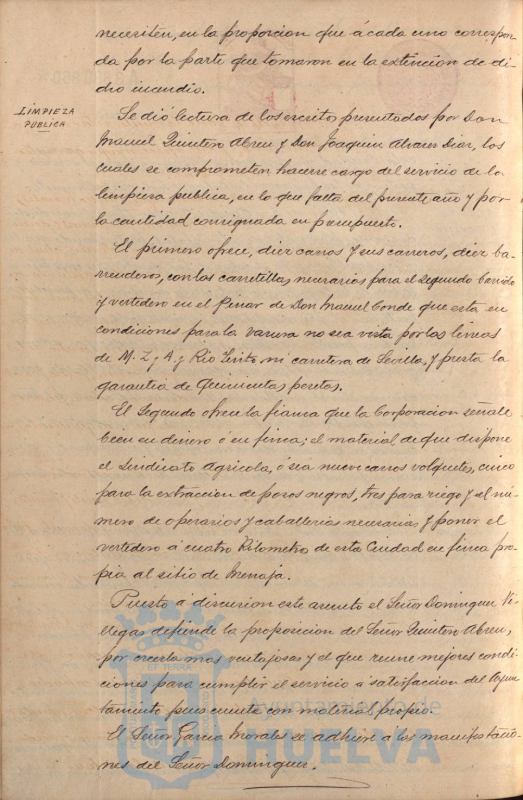 necesiten, en la proporcion que á cada uno correspon-
da por la parte que tomaron en la extincion de di-
cho incendio.
LIMPIEZA
PUBLICA
Se dió lectura de los escritos presentados por Don
Manuel Quintero Abreu y Don Joaquin Alvarez Diaz, los
cuales se comprometen hacerse cargo del servicio de la
limpieza publica, en lo que falta del presente año y por
la cantidad consignada en presupuesto.
El primero ofrece, diez carros y sus carreros, diez ba-
rrenderos, con las carretillas necesarias para el segundo barrido
y vertedero en el Pinar de Don Manuel Conde que esta en
condiciones para la basura no sea vista por las lineas
de M. Z. y A. y Rio Tinto, ni carretera de Sevilla, y presta la
garantia de Quinientas pesetas.
El Segundo ofrece la fianza que la Corporacion señale
bien en dinero ó en finca; el material de que dispone
el Sindicato Agricola, ó sea nueve carros volquetes, cinco
para la extraccion de pozos negros, tres para riego y el nú-
mero de operarios y caballerias necesarias y poner el
vertedero á cuatro Kilometro de esta Ciudad en finca pro-
pia al sitio de
Puesto á discusion este asunto el Señor Dominguez Vi-
llegas defiende la proposicion del Señor Quintero Abreu,
por creerla mas ventajosas y el que reune mejores condi-
ciones para cumplir el servicio á satisfaccion del Ayun-
tamiento pues cuenta con material propio.
El Señor Garcia Morales se adhiere á las manifestacio-
nes del Señor Dominguez.
HUELVA